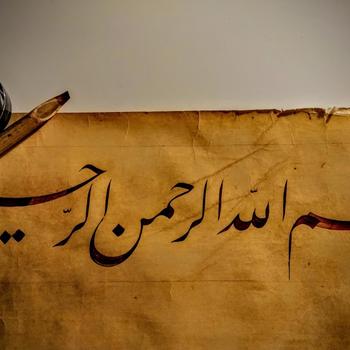 ـم اللّه الرحمن الرّحيـ